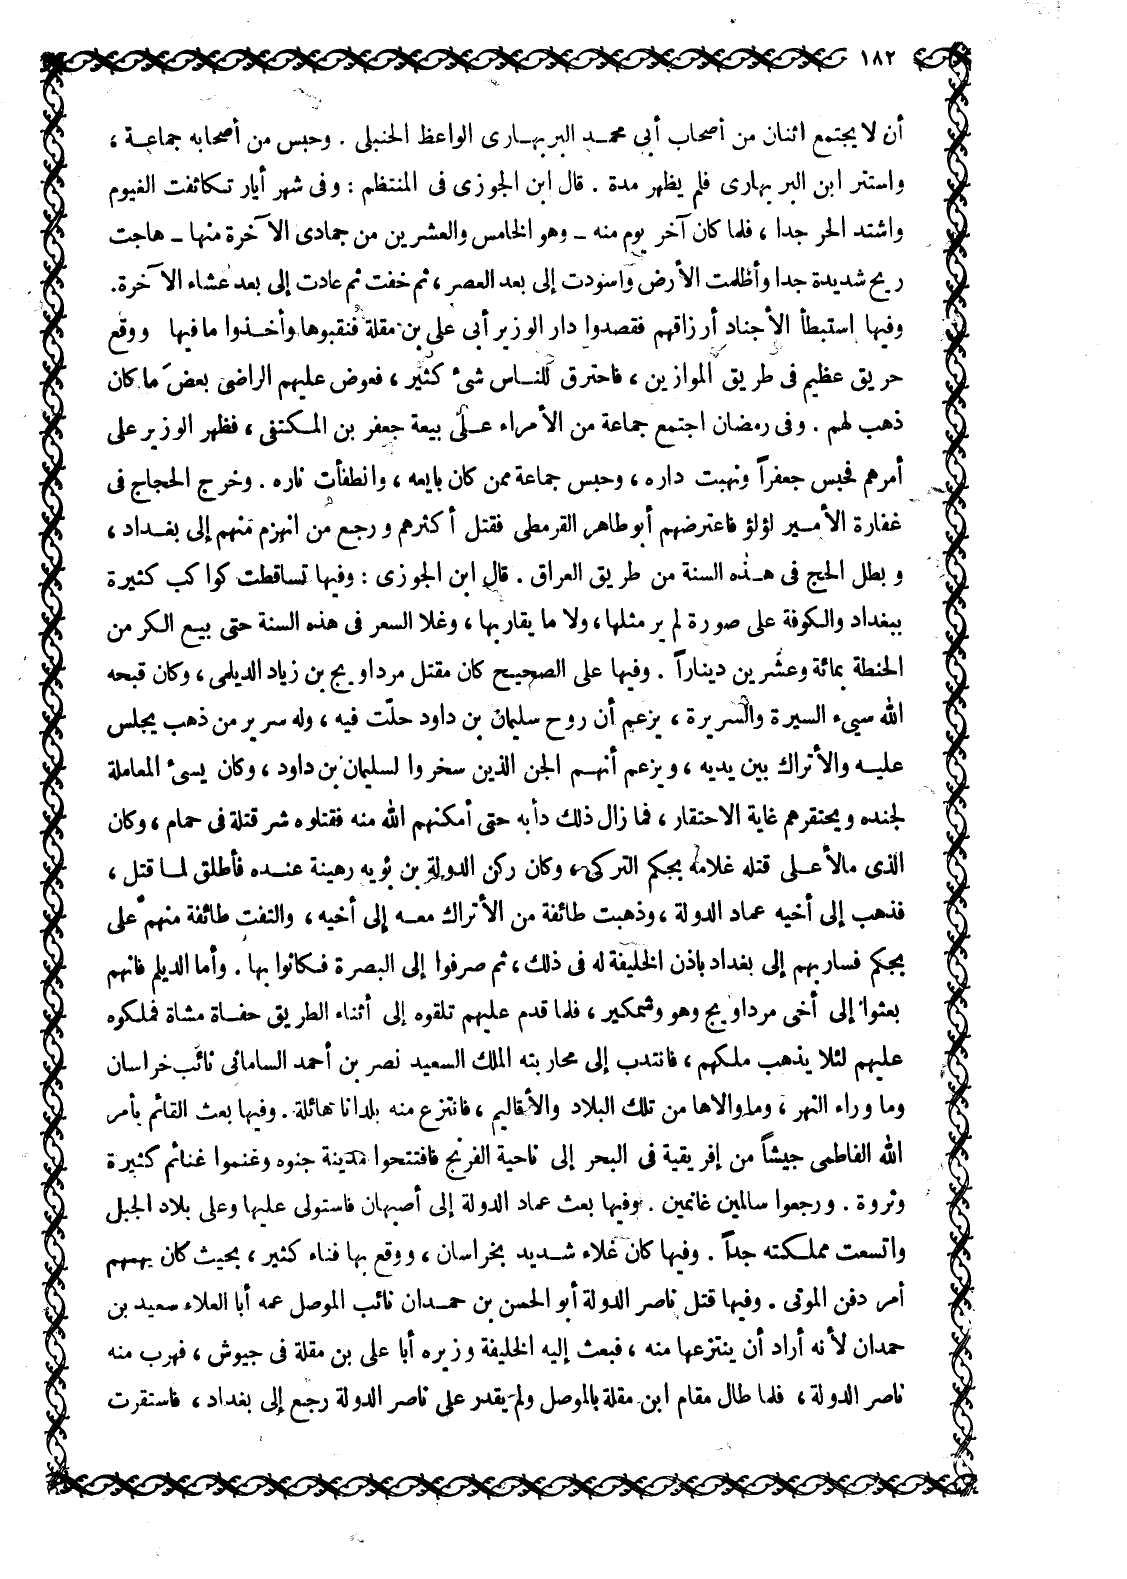 ١٨٢
أن لا يجتمع اثنان من أصحاب أبى محمد البربهارى الواعظ الحنبلى . وحبس من أصحابه جماعة ،
واستتر ابن البر بهارى فلم يظهر مدة . قال ابن الجوزى فى المنتظم : وفى شهر أيار تكاثفت الغيوم
واشتد الحر جدا ، فلما كان آخر يوم منه ــ وهو الخامس والعشرين من جمادى الآخرة منها ــ هاجت
ريح شديدة جدا وأظلمت الأرض واسودت إلى بعد العصر ، ثم خفت ثم عادت إلى بعد عشاء الآخرة.
وفيها استبطأ الأجناد أرزاقهم فقصدوا دار الوزير أبى على بن مقلة فنقبوها وأخذوا ما فيها ووقع
حريق عظيم فى طريق الموازين ، فاحترق للناس شىء كثير ، فعوض عليهم الراضى بعض ما كان
ذهب لهم . وفى رمضان اجتمع جماعة من الأمراء على بيعة جعفر بن المكتفى ، فظهر الوزير على
أمرهم فحبس جعفراً ونهبت داره ، وحبس جماعة ممن كان بايعه ، وانطفأت ناره . وخرج الحجاج فى
غفارة الأمير لؤلؤ فاعترضهم أبو طاهر القرمطى فقتل أكثرهم ورجع من انهزم منهم إلى بغداد ،
وبطل الحج فى هذه السنة من طريق العراق . قال ابن الجوزى : وفيها تساقطت كواكب كثيرة
ببغداد والكوفة على صورة لم ير مثلها ، ولا ما يقاربها ، وغلا السعر فى هذه السنة حتى بيع الكر من
الحنطة بمائة وعشرين ديناراً . وفيها على الصحيح كان مقتل مرداويج بن زياد الديلمى ، وكان قبحه
الله سيىء السيرة والسريرة ، يزعم أن روح سليمان بن داود حلّت فيه ، وله سرير من ذهب يجلس
عليه والأتراك بين يديه ، ويزعم أنهم الجن الذين سخروا لسليمان بن داود ، وكان يسىء المعاملة
لجنده ويحتقرهم غاية الاحتقار ، فما زال ذلك دأبه حتى أمكنهم الله منه فقتلوه شر قتلة فى حمام ، وكان
الذى مالأ على قتله غلامه بجكم التركى ، وكان ركن الدولة بن بويه رهينة عنده فأطلق لما قتل ،
فذهب إلى أخيه عماد الدولة ، وذهبت طائفة من الأتراك معه إلى أخيه ، والتفت طائفة منهم على
بجكم فسار بهم إلى بغداد باذن الخليفة له فى ذلك ، ثم صرفوا إلى البصرة فكانوا بها . وأما الديلم فانهم
بعثوا إلى أخى مرداويج وهو وشمكير ، فلما قدم عليهم تلقوه إلى أثناء الطريق حفاة مشاة فملكوه
عليهم لئلا يذهب ملكهم ، فانتدب إلى محاربته الملك السعيد نصر بن أحمد السامانى نائب خراسان
وما وراء النهر ، وما والاها من تلك البلاد والأقاليم ، فانتزع منه بلدانا هائلة . وفيها بعث القائم بأمر
الله الفاطمى جيشاً من إفريقية فى البحر إلى ناحية الفرنج فافتتحوا مدينة جنوه وغنموا غنائم كثيرة
وثروة . ورجعوا سالمين غانمين . وفيها بعث عماد الدولة إلى أصبهان فاستولى عليها وعلى بلاد الجبل
واتسعت مملكته جداً . وفيها كان غلاء شديد بخراسان ، ووقع بها فناء كثير ، بحيث كان يهمهم
أمر دفن الموتى . وفيها قتل ناصر الدولة أبو الحسن بن حمدان نائب الموصل عمه أبا العلاء سعيد بن
حمدان لأنه أراد أن ينتزعها منه ، فبعث إليه الخليفة وزيره أبا على بن مقلة فى جيوش ، فهرب منه
ناصر الدولة ، فلما طال مقام ابن مقلة بالموصل ولم يقدر على ناصر الدولة رجع إلى بغداد ، فاستقرت